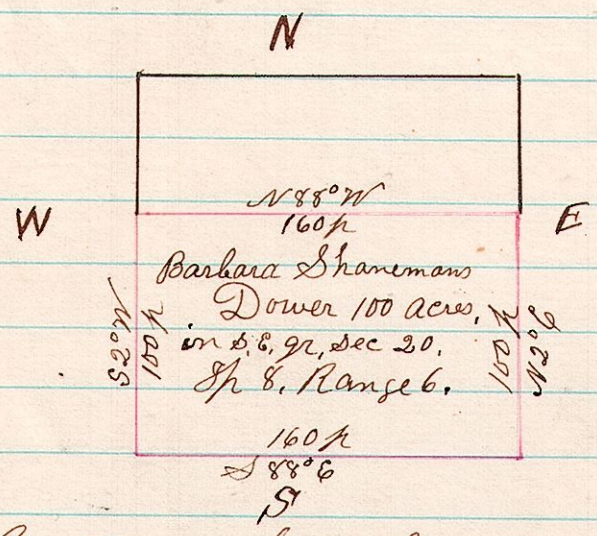 N
W
E
N 88° W
160 p
Barbara Shanemans
Dower 100 acres,
in S. E. qr, Sec 20.
Tp 8. Range 6.
S 2° W
100 p
100 p
N 2° E
160 p
S 88° E
S